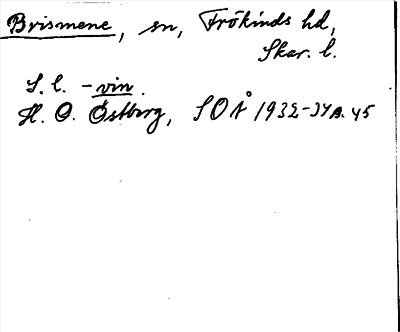 Brismene, sn, Frökinds hd,
Skar. l.
S. l. -vin.
H. O. Östberg, SOÅ 1932-34 s. 45